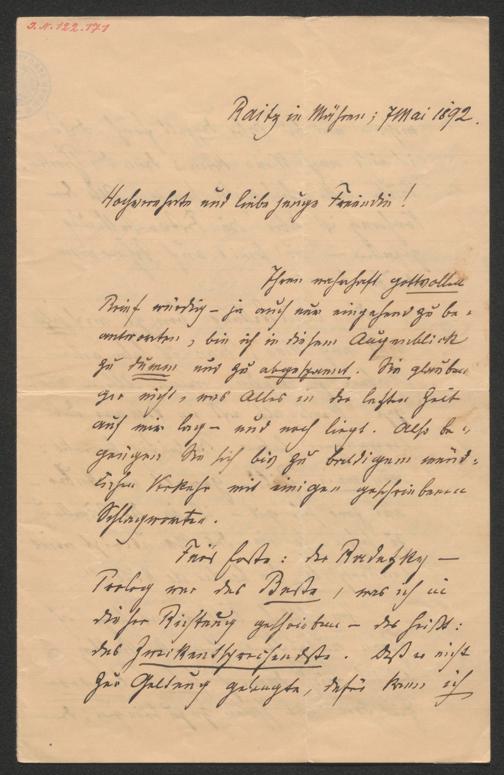 J.N. 122.171
Raitz in Mähren; 7 Mai 1892.
Hochverehrte und liebe junge Freundin!
Ihren wahrhaft gottvollen
Brief würdig – ja auch nur eingehend zu be-
antworten, bin ich in diesem Augenblick
zu dumm und zu abgespannt. Sie glauben
gar nicht, was Alles in der letzten Zeit
auf mir lag – und noch liegt. Also be-
gnügen Sie sich bis zu baldigem münd-
lichen Verkehr mit einigen geschriebenen
Schlagworten.
Fürs Erste: der Radetzky –
Prolog war das Beste, was ich in
dieser Richtung geschrieben – das heißt:
das Zweckentsprechendste. Daß er nicht
zur Geltung gelangte, dafür kann ich